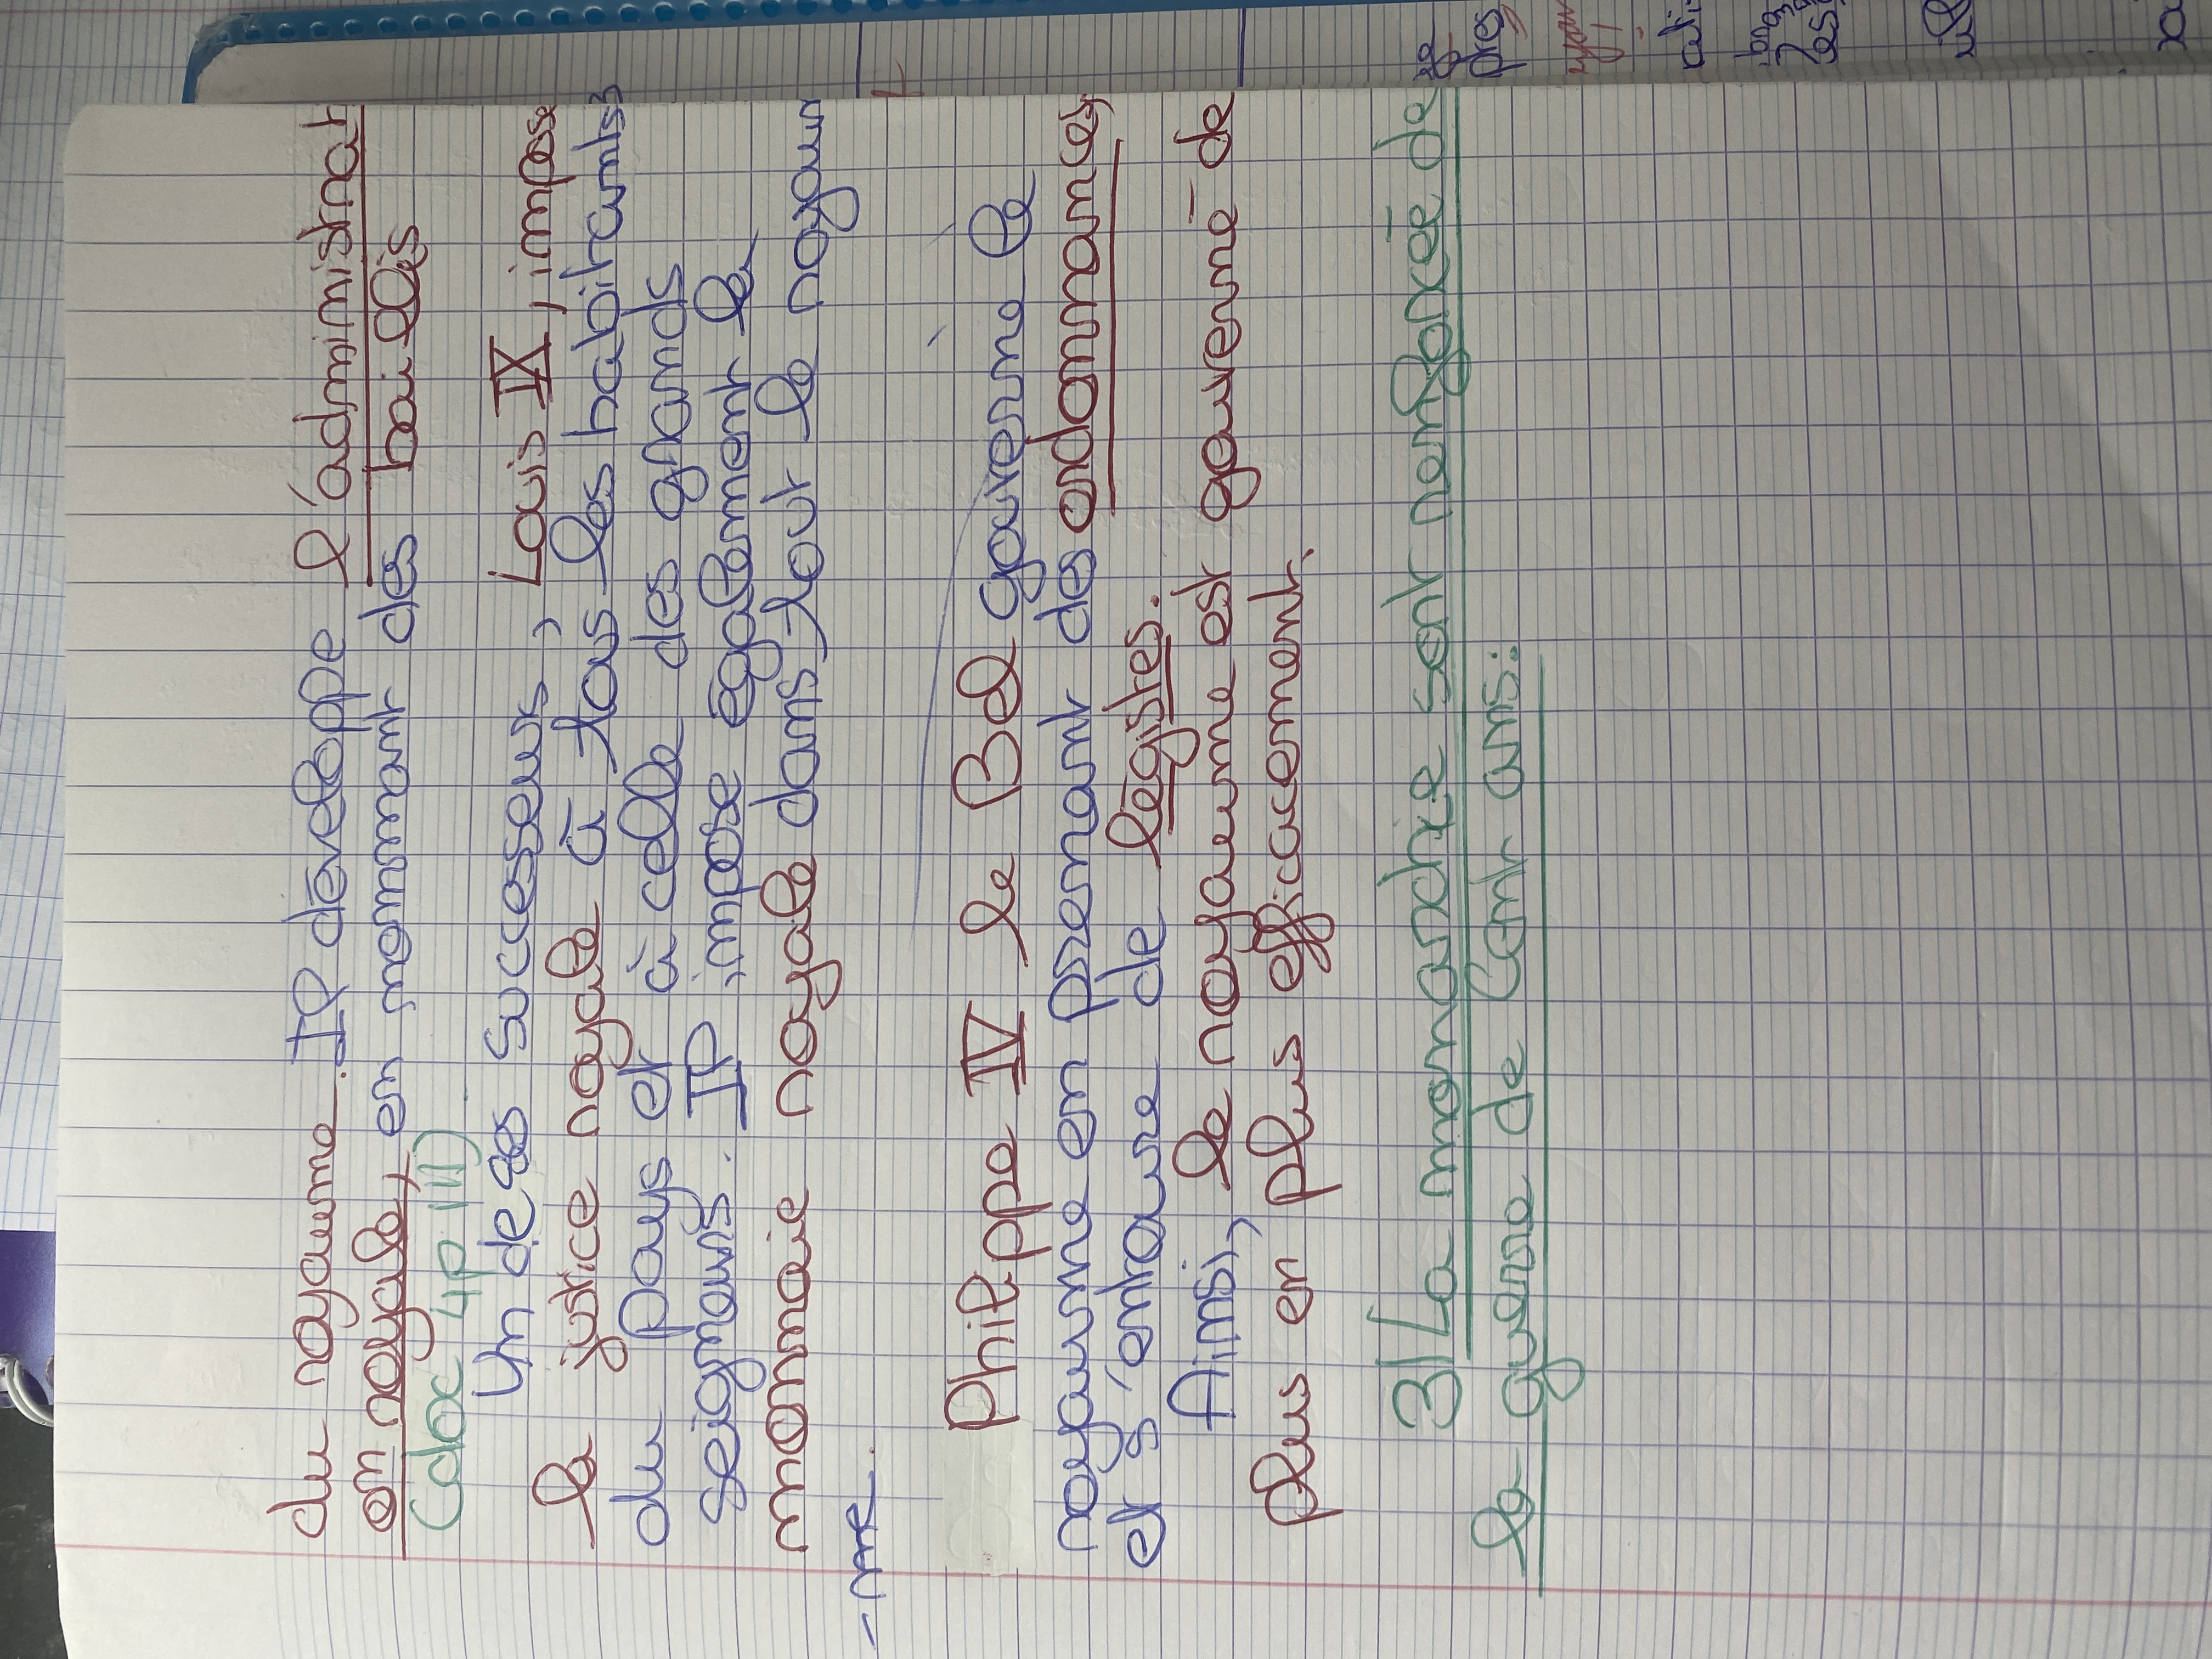 du royaume. Il développe l'administrati
on royale, en nommant des baillis
(doc 4p 111)
Un de ses successeurs, Louis IX, impose
la justice royale à tous les habitants
du pays et à celle des grands
seigneurs. Il impose également la
monnaie royale dans tout le royau
-me.
Philippe IV le Bel gouverne le
royaume en prenant des ordonnances,
et s'entoure de légistes.
Ainsi, le royaume est gouverné de
plus en plus efficacement.
3/ La monarchie sont remforcée de
la guerre de Cent ans: